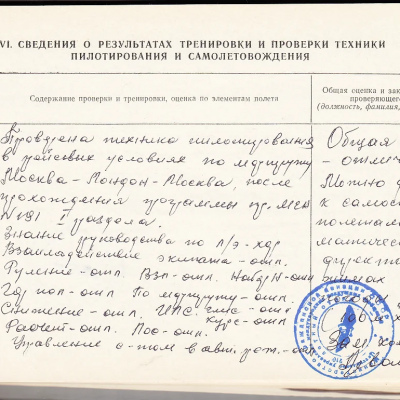 VI. СВЕДЕНИЯ О РЕЗУЛЬТАТАХ ТРЕНИРОВКИ И ПРОВЕРКИ ТЕХНИКИ
ПИЛОТИРОВАНИЯ И САМОЛЕТОВОЖДЕНИЯ
Содержание проверки и тренировки, оценка по элементам полета
Общая оценка и зак
проверяющего
(должность, фамилия,
Проведена техника пилотирования
в рейсовых условиях по маршруту
Москва-Лондон-Москва, после
прохождения программы пр. МГА
II раздела.
Знание руководства по л/э - хор
Взаимодействие экипажа - отл.
Руление - отл. Взл - отл. Набор Н - отл
Гор пол - отл. По маршруту - отл.
Снижение - отл. - отл
Расчет - отл. Пос - отл. курс - отл
Управление с-том в авт. - отл
Общая
- отличн
Можно д
к самост
полетам